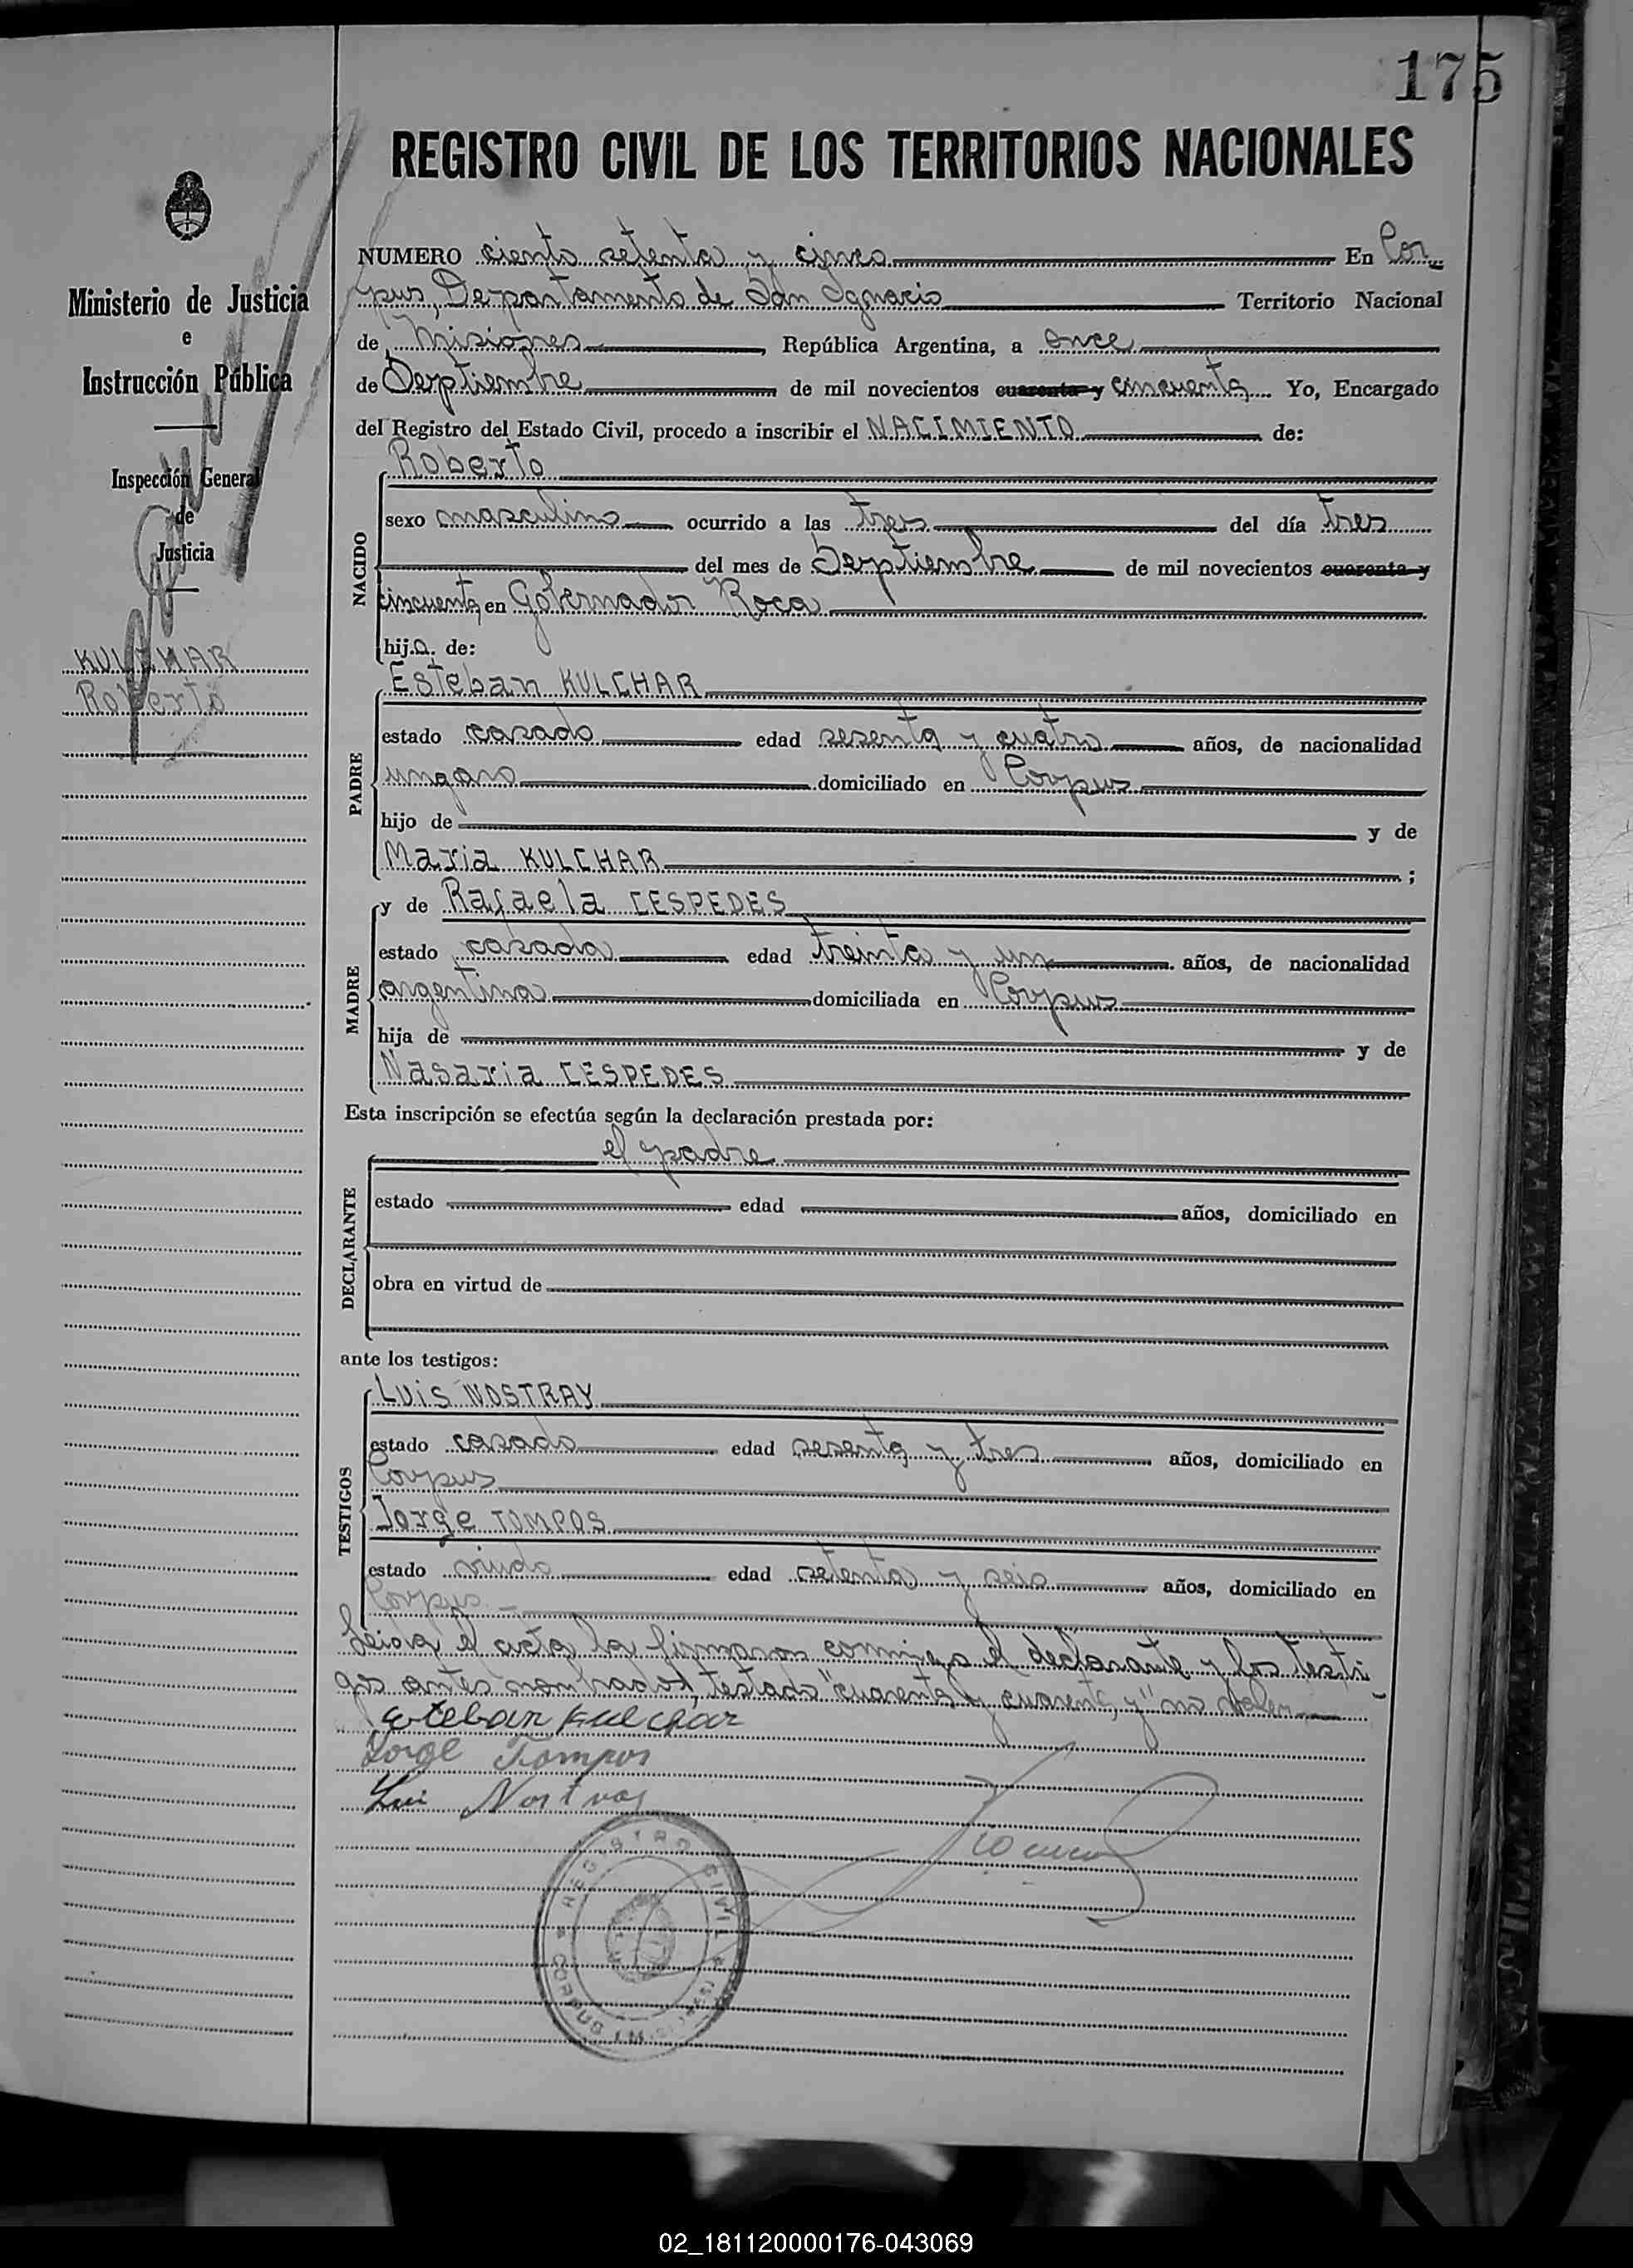 175
REGISTRO CIVIL DE LOS TERRITORIOS NACIONALES
Ministerio de Justicia
e
Instrucción Pública
Inspección General
de
Justicia
KULCHAR
Roberto
NUMERO ciento setenta y cinco En Cor
pus, Departamento de San Ignacio Territorio Nacional
de Misiones, República Argentina, a once
de Septiembre de mil novecientos cuarenta y cincuenta Yo, Encargado
del Registro del Estado Civil, procedo a inscribir el NACIMIENTO de:
NACIDO
Roberto
sexo masculino ocurrido a las tres del día tres
del mes de Septiembre de mil novecientos cuarenta y
cincuenta en Gobernador Roca
hijo de:
PADRE
Esteban KULCHAR
estado casado edad sesenta y cuatro años, de nacionalidad
ungaro domiciliado en Corpus
hijo de y de
Maria KULCHAR ;
MADRE
y de Rafaela CESPEDES
estado casada edad treinta y un años, de nacionalidad
argentina domiciliada en Corpus
hija de y de
Nasaria CESPEDES
Esta inscripción se efectúa según la declaración prestada por:
DECLARANTE
el padre
estado edad años, domiciliado en
obra en virtud de
ante los testigos:
TESTIGOS
Luis NOSTRAY
estado casado edad sesenta y tres años, domiciliado en
Corpus
Jorge TOMPOS
estado viudo edad setenta y seis años, domiciliado en
Corpus.
Leida el acta la firmaron conmigo el declarante y los testi
gos antes nombrados, testado "cuarenta y cuarenta y" no valen
Esteban Kulchar
Jorge Tompos
Lui Nostray
REGISTRO CIVIL
CORPUS
02_181120000176-043069